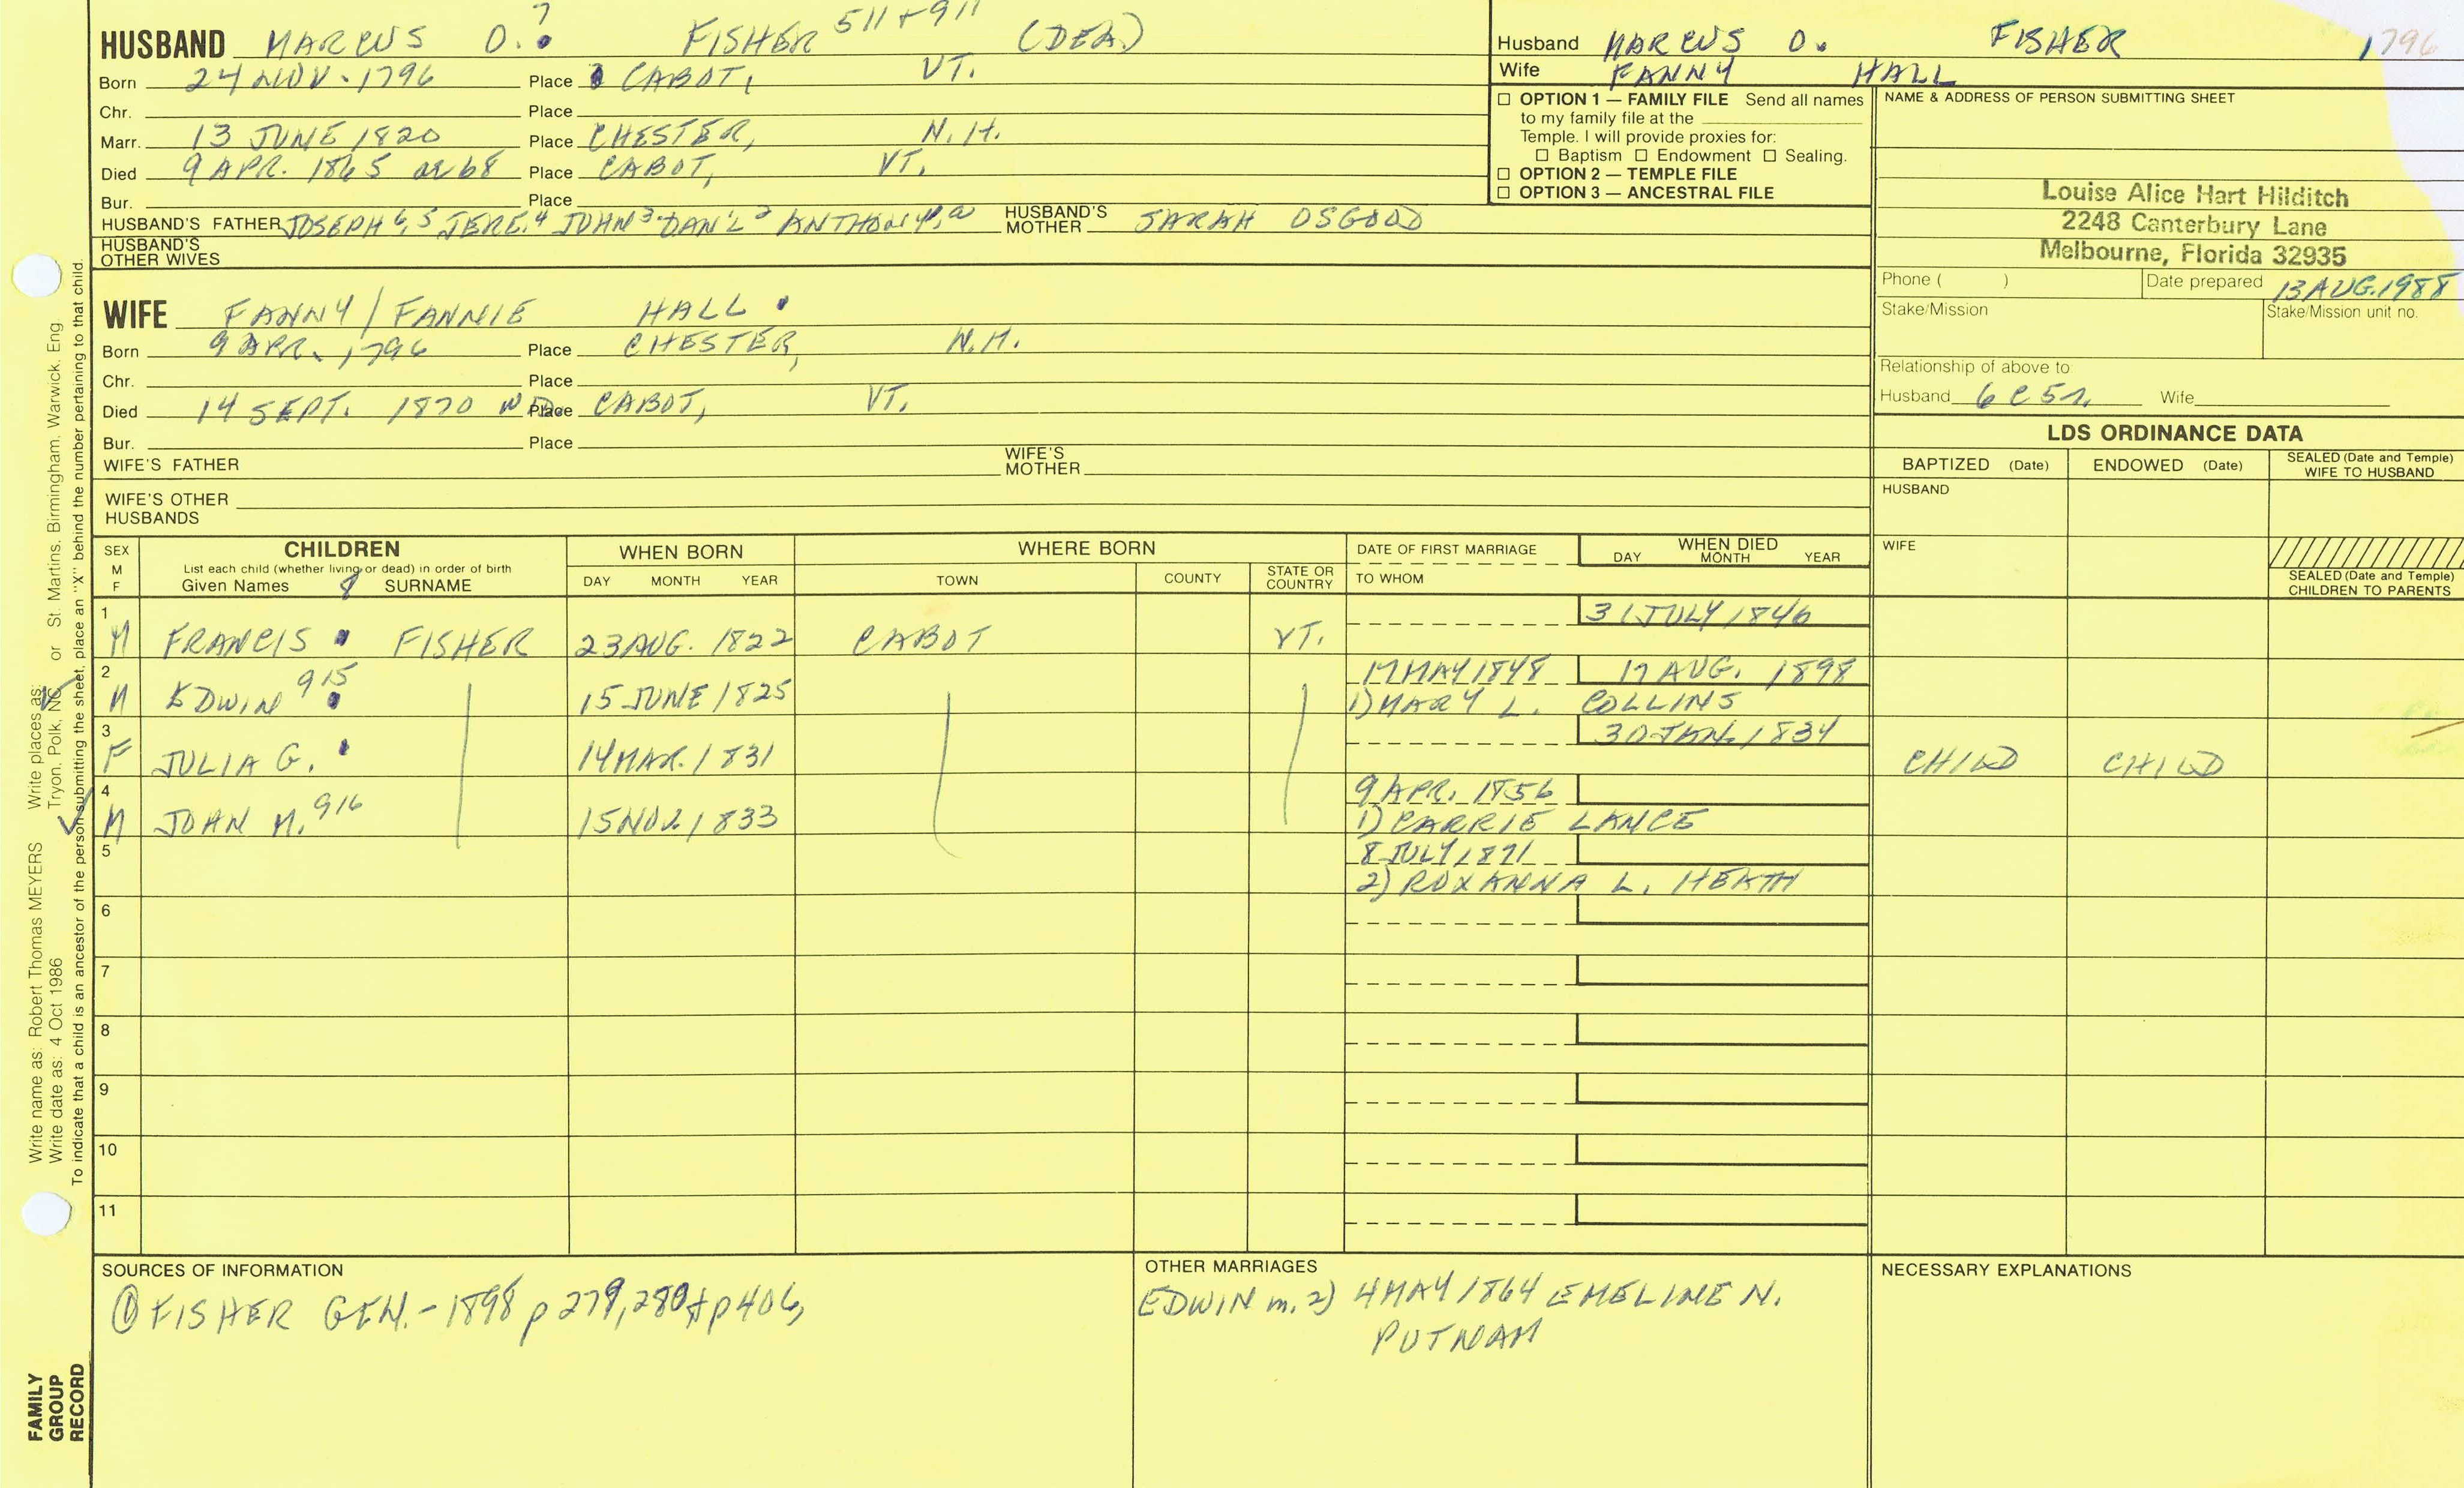 HUSBAND MARCUS O.? FISHER 511+911 (DEA)
Born 24 NOV. 1796 Place CABOT, VT.
Chr. Place
Marr. 13 JUNE 1820 Place CHESTER, N.H.
Died 9 APR. 1865 or 68 Place CABOT, VT.
Bur. Place
HUSBAND'S FATHER JOSEPH 6, 5 JERE. 4 JOHN 3 DAN'L 2 ANTHONY HUSBAND'S MOTHER SARAH OSGOOD
HUSBAND'S OTHER WIVES
Husband MARCUS O. FISHER 1796
Wife FANNY HALL
☐ OPTION 1 — FAMILY FILE Send all names
to my family file at the
Temple. I will provide proxies for:
☐ Baptism ☐ Endowment ☐ Sealing.
☐ OPTION 2 — TEMPLE FILE
☐ OPTION 3 — ANCESTRAL FILE
NAME & ADDRESS OF PERSON SUBMITTING SHEET
Louise Alice Hart Hilditch
2248 Canterbury Lane
Melbourne, Florida 32935
Phone ( ) Date prepared 13 AUG. 1988
Stake/Mission Stake/Mission unit no.
Relationship of above to
Husband 6 C 5 r. Wife
WIFE FANNY / FANNIE HALL
Born 9 APR. 1796 Place CHESTER, N.H.
Chr. Place
Died 14 SEPT. 1870 Place CABOT, VT.
Bur. Place
WIFE'S FATHER WIFE'S MOTHER
WIFE'S OTHER HUSBANDS
LDS ORDINANCE DATA
BAPTIZED (Date) ENDOWED (Date) SEALED (Date and Temple) WIFE TO HUSBAND
HUSBAND
WIFE
SEALED (Date and Temple) CHILDREN TO PARENTS
SEX M F CHILDREN List each child (whether living or dead) in order of birth Given Names SURNAME
WHEN BORN DAY MONTH YEAR
WHERE BORN TOWN COUNTY STATE OR COUNTRY
DATE OF FIRST MARRIAGE TO WHOM
WHEN DIED DAY MONTH YEAR
1 31 JULY 1846
M FRANCIS FISHER 23 AUG. 1822 CABOT VT.
2 17 MAY 1848 17 AUG. 1898
M EDWIN 915 15 JUNE 1825 1) MARY L. COLLINS
3 30 JAN. 1834
F JULIA G. 14 MAR. 1831 CHILD CHILD
4 9 APR. 1856
M JOHN M. 916 15 NOV. 1833 1) CARRIE LANCE
5 8 JULY 1871
2) ROXANNA L. HEATH
6
7
8
9
10
11
SOURCES OF INFORMATION
① FISHER GEN. - 1898 p 279, 280 + p 406,
OTHER MARRIAGES
EDWIN m. 2) 4 MAY 1864 EMELINE N.
PUTNAM
NECESSARY EXPLANATIONS
Write name as: Robert Thomas MEYERS Write places as: Tryon, Polk, NC or St. Martins, Birmingham, Warwick, Eng.
Write date as: 4 Oct 1986
To indicate that a child is an ancestor of the person submitting the sheet, place an "X" behind the number pertaining to that child.
FAMILY
GROUP
RECORD